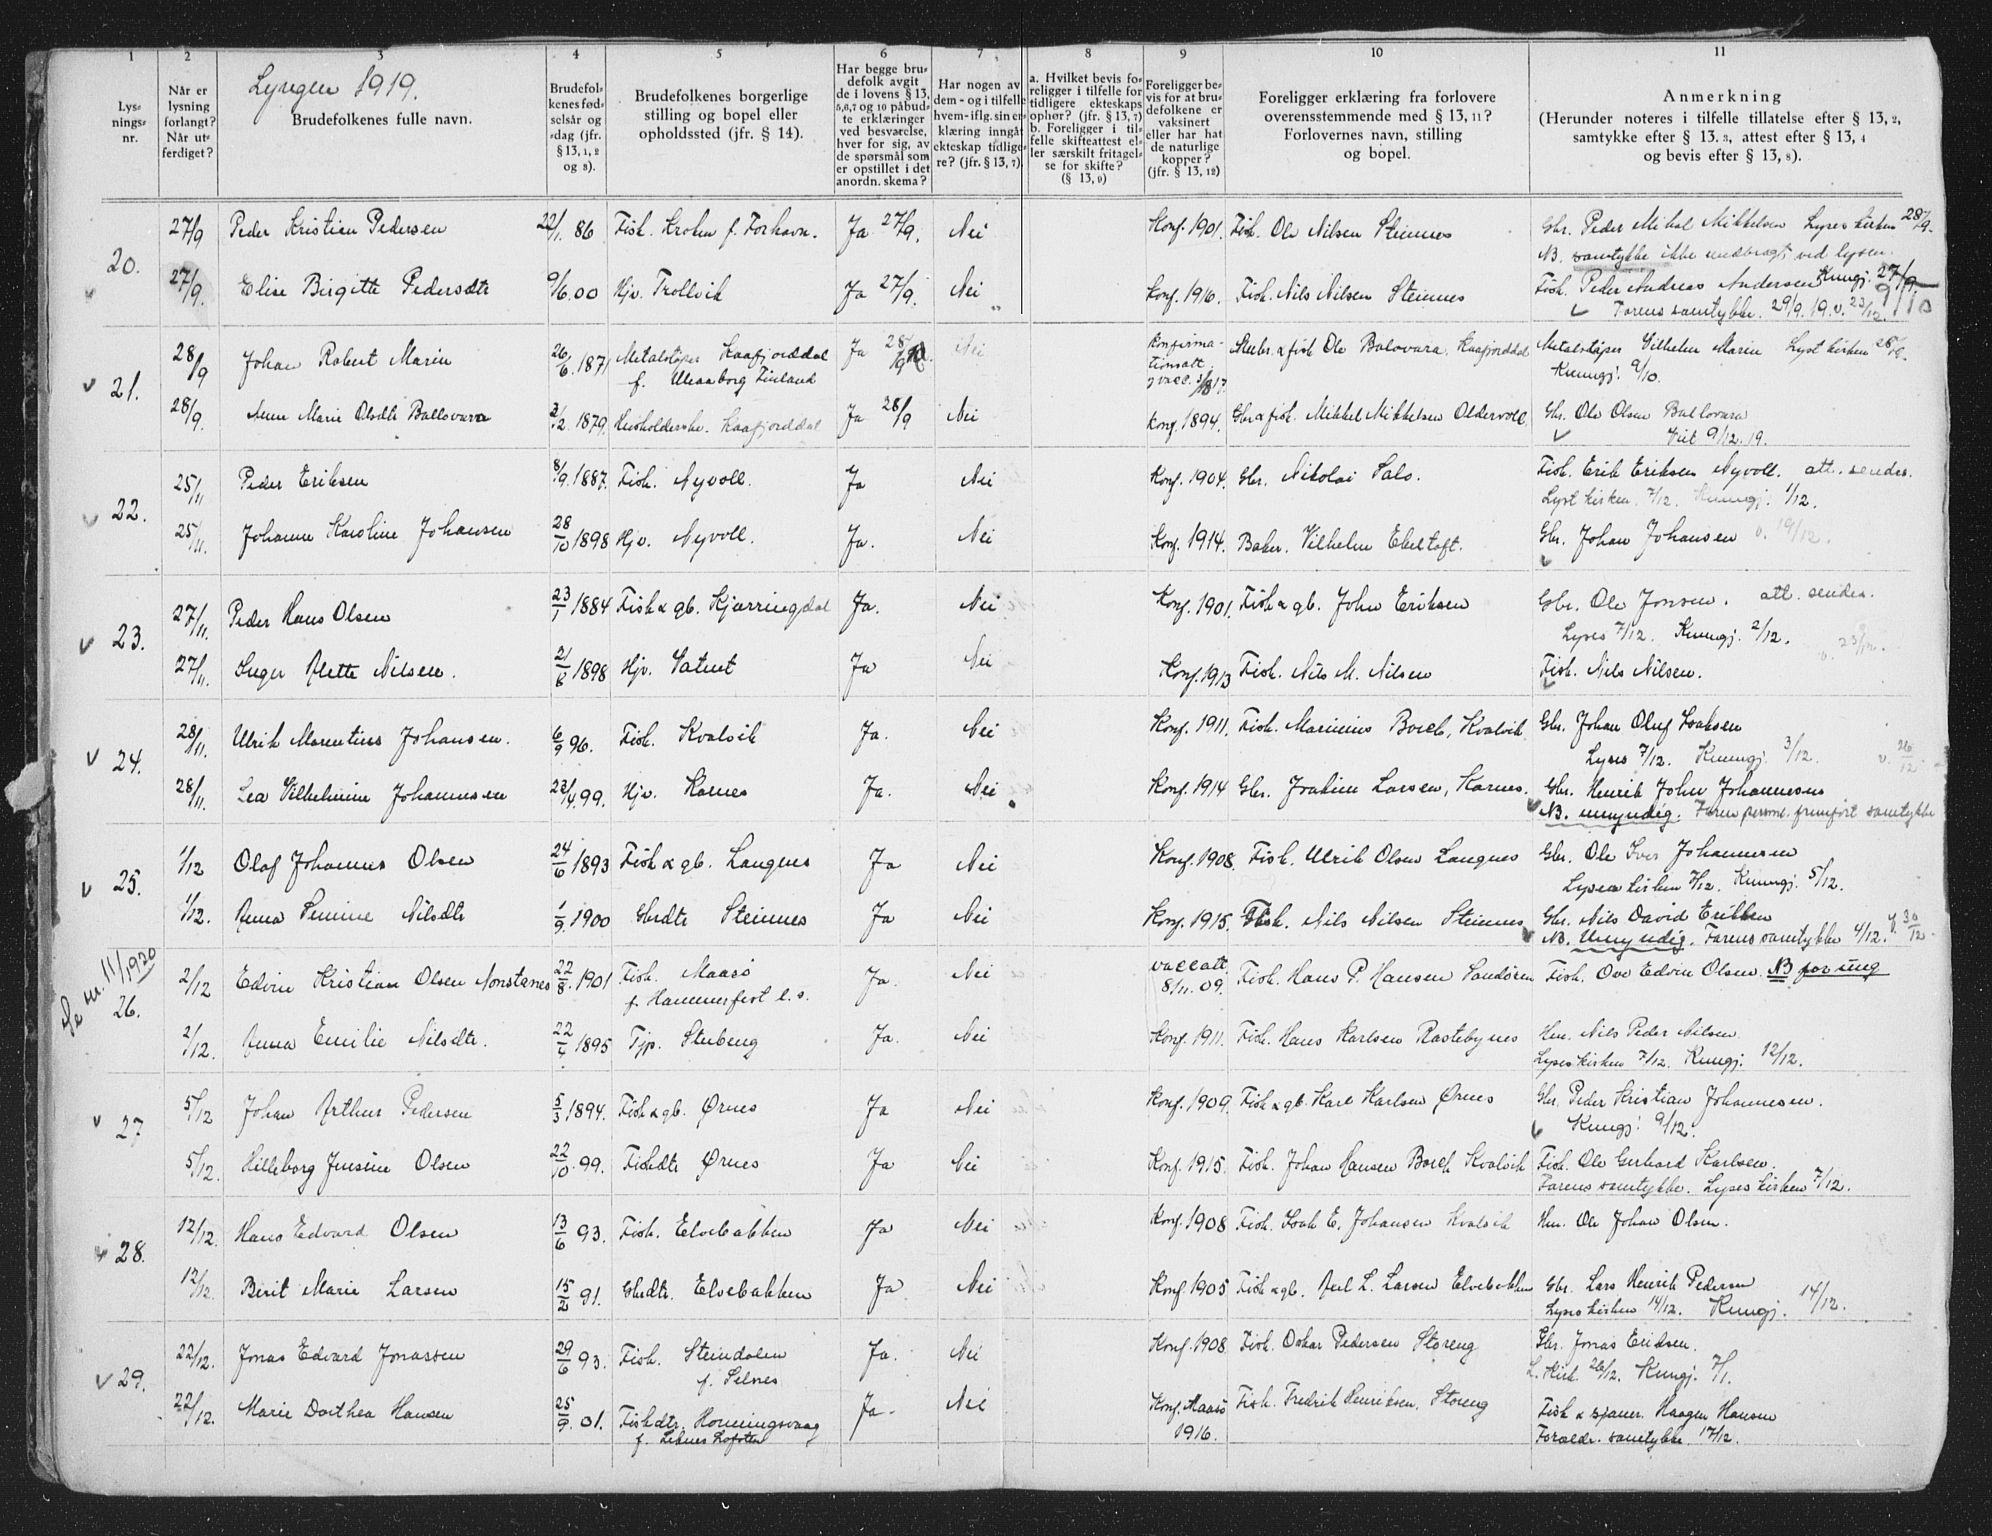 1 2 3 4 5 6 7 8 9 10 11
Lyngen 1919.
Lys-
nings-
nr.
Når er
lysning
forlangt?
Når ut-
ferdiget?
Brudefolkenes fulle navn.
Brudefol-
kenes fød-
selsår og
-dag (jfr.
§ 13, 1, 2
og 8).
Brudefolkenes borgerlige
stilling og bopel eller
opholdssted (jfr. § 14).
Har begge bru-
defolk avgit
de i lovens § 13,
5,6,7 og 10 påbud-
te erklæringer
ved besvarelse,
hver for sig, av
de spørsmål som
er opstillet i det
anordn. skema?
Har nogen av
dem - og i tilfelle
hvem - iflg. sin er-
klæring inngått
ekteskap tidlige-
re? (jfr. § 13, 7)
a. Hvilket bevis fo-
religger i tilfelle for
tidligere ekteskaps
ophør? (jfr. § 13, 7)
b. Foreligger i til-
felle skifteattest el-
ler særskilt fritagel-
se for skifte?
(§ 13, 9)
Foreligger be-
vis for at bru-
defolkene er
vaksinert
eller har hat
de naturlige
kopper?
(jfr. § 13, 12)
Foreligger erklæring fra forlovere
overensstemmende med § 13, 11?
Forlovernes navn, stilling
og bopel.
Anmerkning
(Herunder noteres i tilfelle tillatelse efter § 13, 2,
samtykke efter § 13. 3, attest efter § 13, 4
og bevis efter § 13, 8).
20.
27/9 Peder Kristian Pedersen 22/1. 86 Fisk. Kroken f. Forhavn. Ja 27/9. Nei Konf. 1901. Fisk. Ole Nilsen Steinnes Gbr. Peder Mikal Mikkelsen Lyses kirken 28/9.
NB. samtykke ikke medbragt ved lysen.
27/9. Elise Birgitte Pedersdtr 9/6.00 Hjv. Trollvik Ja 27/9. Nei Konf. 1916. Fisk. Nils Nilsen Steinnes Fisk. Peder Andreas Andersen Kungj. 27/9.
Farens samtykke. 29/9. 19. v. 23/12.
21.
28/9 Johan Robert Marin 26/6. 1871 Metalstøper Kaafjorddal Ja 28/9 Nei Konfirma-
tionsatt. Gbr. & fisk Ole Balovara. Kaafjorddal Metalstøper Vilhelm Marin Lyst kirken 28/9.
f. Uleaaborg Finland
Kungj. 9/10.
28/9. Anne Marie Olsdtr Ballovara 3/2. 1879. Husholderske. Kaafjorddal Ja 28/9 Nei Konf. 1894. Gbr & fisk. Mikkel Mikkelsen Oldervoll. Gbr. Ole Olsen Ballovara
Viet 9/12. 19.
22.
25/11 Peder Eriksen 8/9. 1887. Fisk. Nyvoll. Ja Nei Konf. 1904. Gbr. Nikolai Salo. Fisk. Erik Eriksen Nyvoll. att. sendes.
Lyst kirken. 7/12. Kungj. 1/12.
25/11. Johanne Karoline Johansen 28/10 1898 Hjv. Nyvoll. Ja. Nei Konf. 1914. Baker. Vilhelm Ebeltoft. Gbr. Johan Johansen v. 19/12.
23.
27/11. Peder Hans Olsen 23/1 1884 Fisk & gb. Kjærringdal Ja. Nei Konf. 1901. Fisk & gb. John Eriksen Gbr. Ole Jonsen. att. sendes.
Lyses 7/12. Kungj. 2/12.
v. 23/12.
27/11. Inger Alette Nilsen. 21/8 1898 Hjv. Ja Nei Konf. 1913 Fisk. Nils M. Nilsen Fisk. Nils Nilsen.
24.
28/11. Ulrik Marentius Johansen. 6/9 96. Fisk. Kvalvik Ja. Nei Konf. 1911. Fisk. Marinius Borch, Kvalvik Gbr. Johan Oluf Isaksen
Lyses 7/12. Kungj. 3/12. v. 26/12
28/11. Lea Vilhelmine Johannesen 23/4. 99. Hjv. Karnes Ja. Nei Konf. 1914 Gbr. Joakim Larsen, Karnes. Gbr. Henrik John Johannesen
NB. umyndig. Faren person. fremført samtykke
25.
1/12 Olaf Johannes Olsen 24/6 1893 Fisk & gb. Langnes Ja Nei Konf. 1908. Fisk. Ulrik Olsen Langnes Gbr. Ole Iver Johannesen
Lyses kirken 7/12. Kungj. 5/12.
1/12. Anna Nilsdtr 1/9. 1900 Gbrdtr Steinnes Ja Nei Konf. 1915. Fisk. Nils Nilsen Steinnes Gbr. Nils David Eriksen
NB. Umyndig. Farens samtykke 4/12. v. 30/12.
Se nr. 11/1920
26.
2/12 Edvin Kristian Olsen Nonstenes 22/8. 1901 Fisk. Maasø Ja. Nei vaccatt. Fisk. Hans P. Hansen Sandøren Fisk. Ove Edvin Olsen. NB for ung
f. Hammerfest l. s. 8/11. 09.
2/12. Anna Emilie Nilsdtr. 22/4 1895 Tjp. Stubeng Ja. Nei Konf. 1911. Fisk. Hans Karlsen Rastebynes Hm. Nils Peder Nilsen
Lyses kirken 7/12. Kungj. 12/12.
27
5/12 Johan Arthur Pedersen 5/3 1894. Fisk & gb. Ørnes Ja Nei Konf. 1909. Fisk & gb. Karl Karlsen Ørnes Gbr. Peder Kristian Johannesen.
Kungj. 9/12.
5/12. Hilleborg Jensine Olsen 22/10. 99. Fiskdtr Ørnes Ja Nei Konf. 1915. Fisk. Johan Hansen Borch Kvalvik Fisk. Ole Gerhard Karlsen.
Farens samtykke. Lyses kirken 7/12.
28.
12/12. Hans Edvard Olsen 13/6 93. Fisk. Elvebakken Ja Nei Konf. 1908 Fisk. Isak E. Johansen Kvalvik Hm. Ole Johan Olsen.
12/12. Berit Marie Larsen 15/2 91. Gbrdtr. Elvebakken Ja Nei Konf. 1905 Fisk & gb. Axel L. Larsen Elvebakken Gbr. Lars Henrik Pedersen
Lyses kirken 14/12. Kungj. 14/12.
29.
22/12. Jonas Edvard Jonassen 29/6 93. Fisk. Steindalen Ja. Nei Konf. 1908 Fisk. Oskar Pedersen Storeng Gbr. Jonas Eriksen.
f. Selnes
L. Kirk. 26/12. Kungj. 7/1.
22/12. Marie Dorthea Hansen 25/9. 01. Fiskdtr. Honningsvaag Ja. Nei Konf. Maasø Fisk. Fredrik Henriksen, Storeng Fisk & sjauer. Haagen Hansen
f. Leknes Lofoten 1916. Foreldr. samtykke. 17/12.